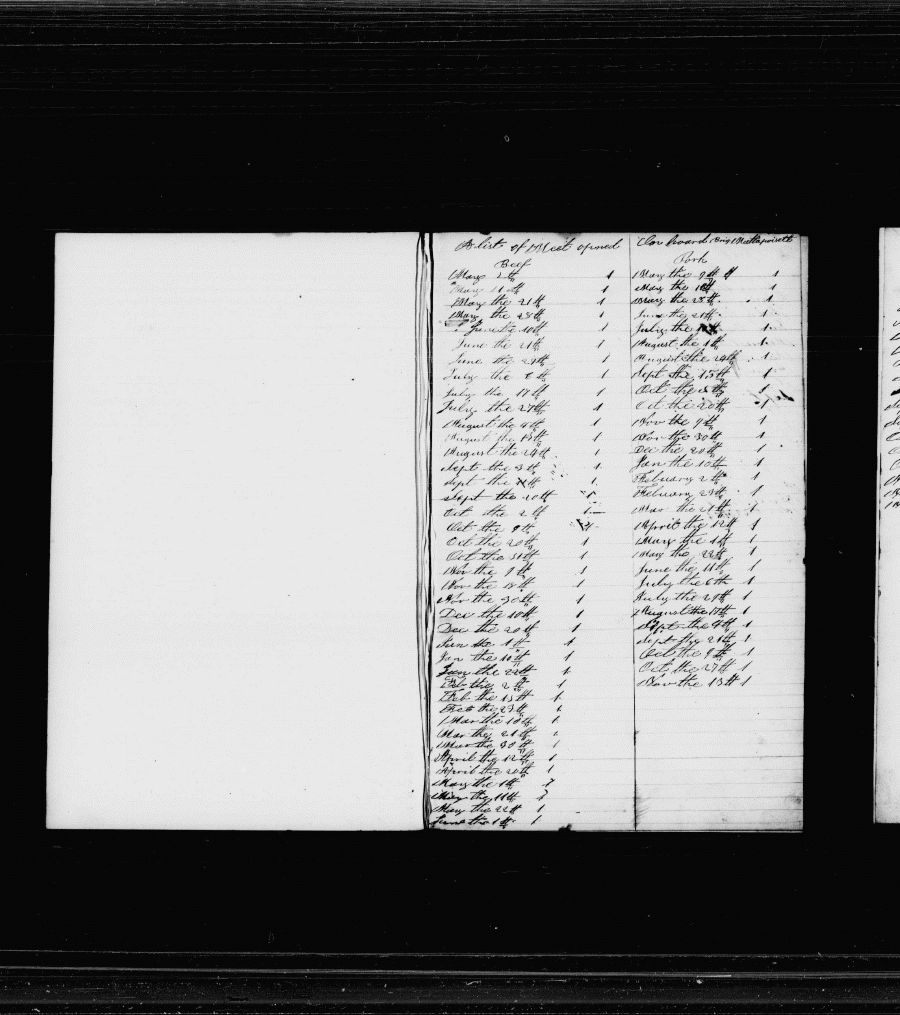 A list of Meet opened on board Brig Mattapoisett
Beef
May 2th 1
May 11th 1
May the 21th 1
May the 28th 1
June the 10th 1
June the 21th 1
June the 29th 1
July the 8th 1
July the 17th 1
July the 27th 1
August the 4th 1
August the 13th 1
August the 24th 1
Sept the 3th 1
Sept the th 1
Sept the 20th 1
Oct the 2th 1
Oct the 9th 1
Oct the 20th 1
Oct the 31th 1
Nov the 9th 1
Nov the 18th 1
Nov the 30th 1
Dec the 10th 1
Dec the 20th 1
Jan the 1th 1
Jan the 10th 1
Jan the 22th 1
Feb the 2th 1
Feb the 13th 1
Feb the 23th 1
Mar the 10th 1
Mar the 21th 1
Mar the 30th 1
April the 12th 1
April the 20th 1
May the 1th 1
May the 11th 1
May the 22th 1
June the 1th 1
Pork
May the 9th 1
May the 1
May the 28th 1
June the 21th 1
July the 1
August the 1th 1
August the 24th 1
Sept the 15th 1
Oct the 8th 1
Oct the 20th 1
Nov the 9th 1
Nov the 30th 1
Dec the 20th 1
Jan the 10th 1
February 2th 1
February 23th 1
Mar the 21th 1
April the 12th 1
May the 1th 1
May the 22th 1
June the 11th 1
July the 6th 1
July the 27th 1
August the 17th 1
Sept the 4th 1
Sept the 21th 1
Oct the 9th 1
Oct the 27th 1
Nov the 13th 1